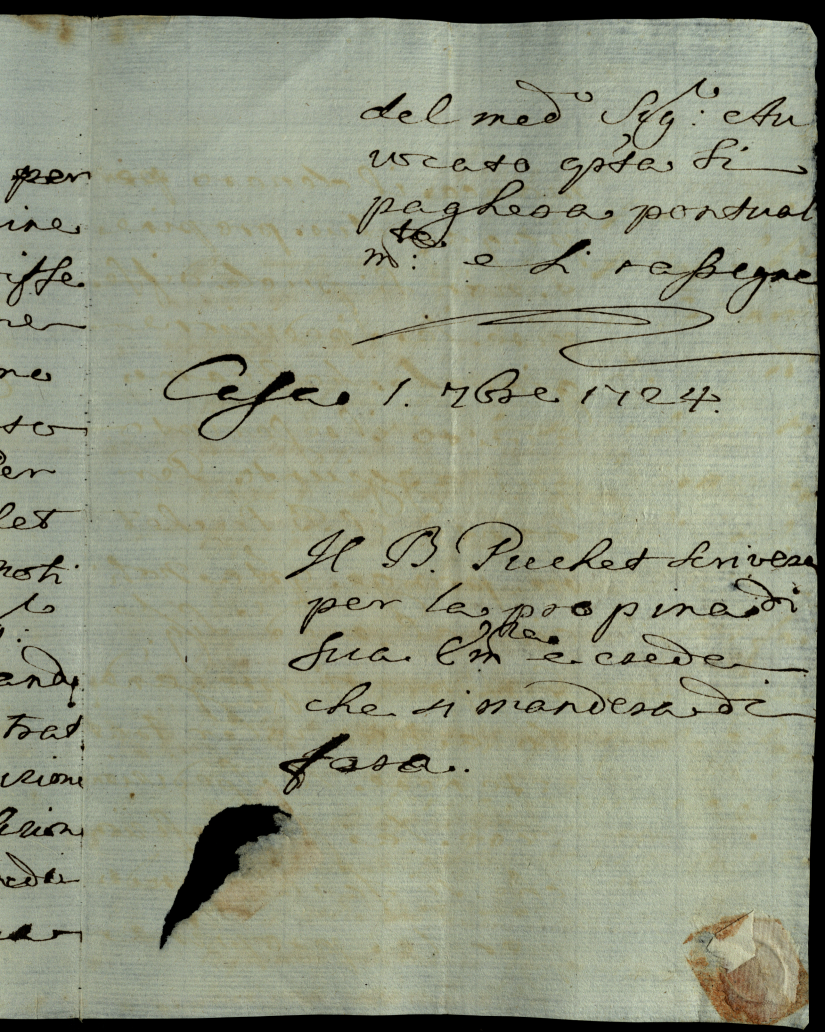 per
ine
iffe
ne
no
so
Per
let
noti
and
trat
izione
izion
ede
del med.o Sig.r: Au
vocato q.sta si
pagherà pontual
m.te: e si rassegna
Casa 1. 7bre 1724.
Il B. Puchet scriverà
per la propina di
sua Em.za e crede
che si manderà di
fora.